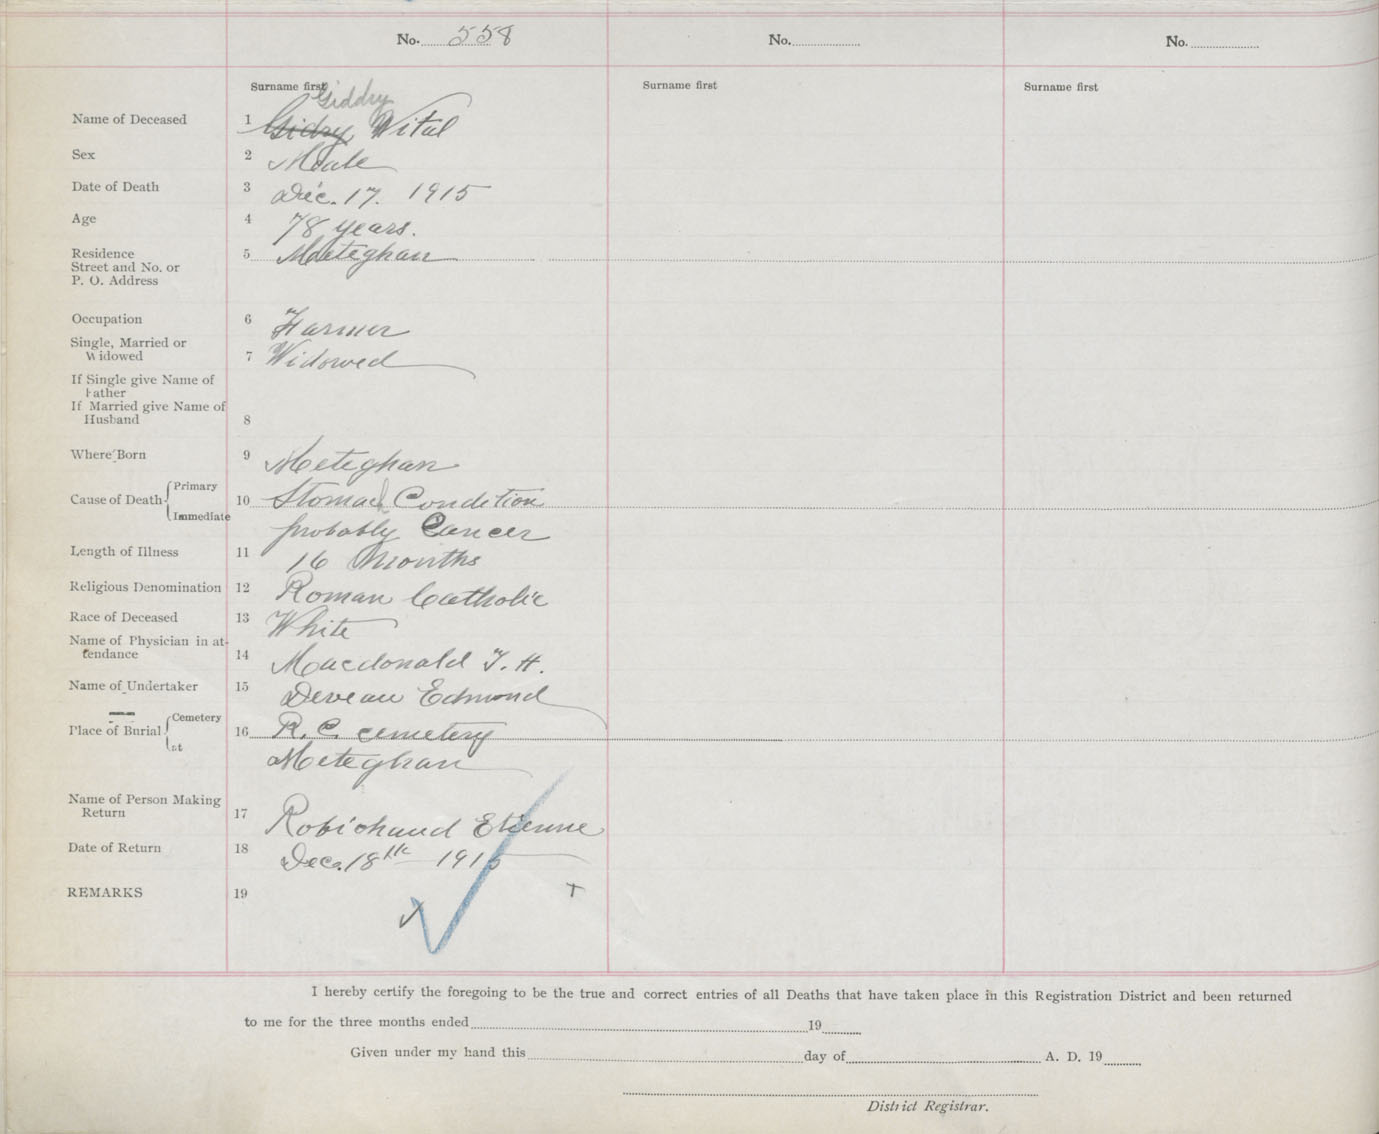 No. 558
No.
No.
Surname first
Surname first
Surname first
Giddry
Name of Deceased 1 Gidry Vital
Sex 2 Male
Date of Death 3 Déc. 17. 1915
Age 4 78 years.
Residence 5 Meteghan
Street and No. or
P. O. Address
Occupation 6 Farmer
Single, Married or
Widowed 7 Widowed
If Single give Name of
Father
If Married give Name of
Husband 8
Where Born 9 Meteghan
Primary
Cause of Death 10 Stomach Condition
Immediate
probably Cancer
Length of Illness 11 16 Months
Religious Denomination 12 Roman Catholic
Race of Deceased 13 White
Name of Physician in at-
tendance 14 Macdonald T. H.
Name of Undertaker 15 Deveau Edmond
Cemetery
Place of Burial 16 R. C. cemetery
at
Meteghan
Name of Person Making
Return 17 Robichaud Etienne
Date of Return 18 Dec. 18th 1915
REMARKS 19
I hereby certify the foregoing to be the true and correct entries of all Deaths that have taken place in this Registration District and been returned
to me for the three months ended 19
Given under my hand this day of A. D. 19
District Registrar.